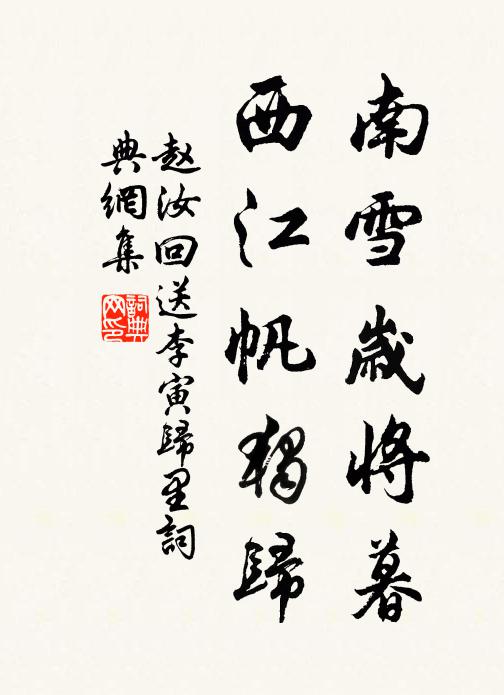 南雪歲將暮
西江帆獨歸
赵汝回送李寅歸里詞
典網集
詞典网印